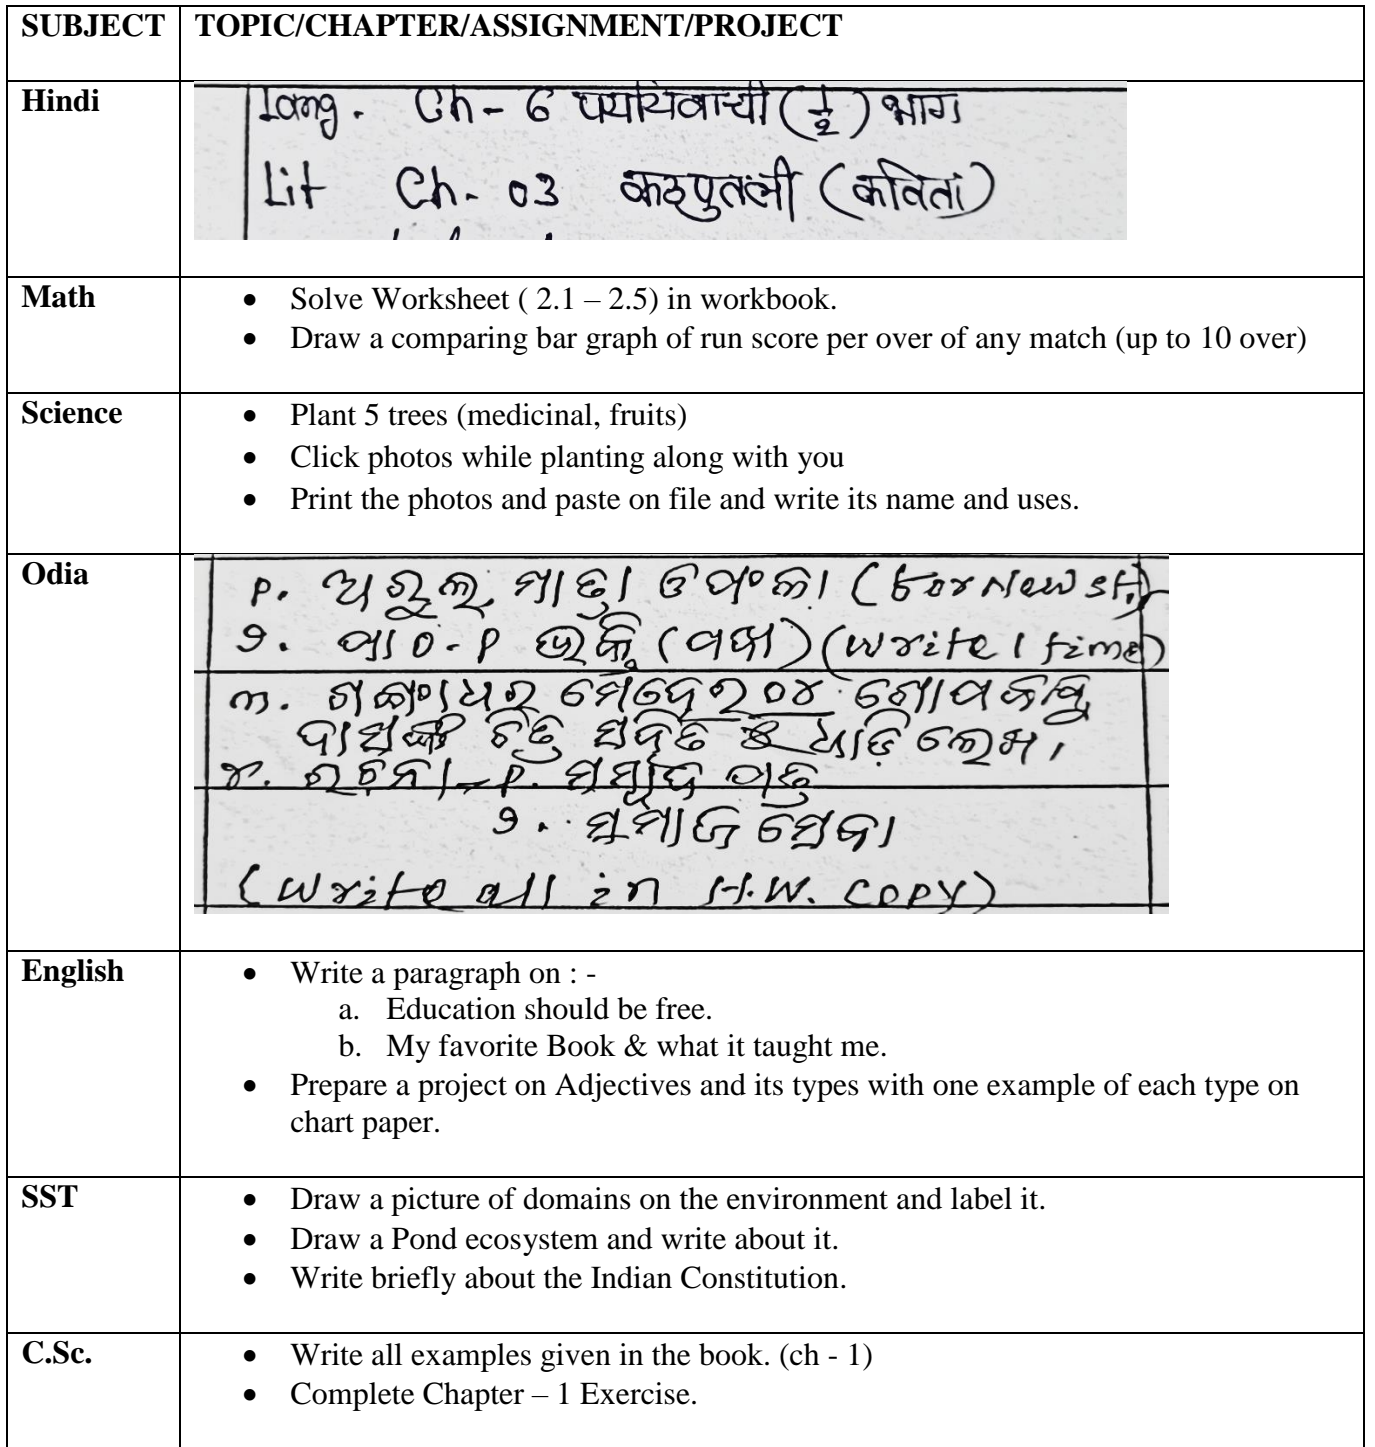 SUBJECT TOPIC/CHAPTER/ASSIGNMENT/PROJECT
Hindi
Lang. Ch - 6 पर्यायवाची (1/2) भाग
Lit Ch. 03 कठपुतली (कविता)
Math
• Solve Worksheet ( 2.1 – 2.5) in workbook.
• Draw a comparing bar graph of run score per over of any match (up to 10 over)
Science
• Plant 5 trees (medicinal, fruits)
• Click photos while planting along with you
• Print the photos and paste on file and write its name and uses.
Odia
ମାତ୍ରା ଓ ଫଳା (for New st.)
୨. ପାଠ - ୧ (ପଦ୍ୟ) (write 1 time)
୩. ଗଙ୍ଗାଧର ମେହେର ଗୋପବନ୍ଧୁ
ଦାସଙ୍କ ଚିତ୍ର ସହିତ ଧାଡ଼ି ଲେଖ।
୪. ରଚନା - ୧. ସମ୍ବାଦ ପତ୍ର
୨. ସମାଜ ସେବା
(Write all in H.W. copy)
English
• Write a paragraph on : -
a. Education should be free.
b. My favorite Book & what it taught me.
• Prepare a project on Adjectives and its types with one example of each type on
chart paper.
SST
• Draw a picture of domains on the environment and label it.
• Draw a Pond ecosystem and write about it.
• Write briefly about the Indian Constitution.
C.Sc.
• Write all examples given in the book. (ch - 1)
• Complete Chapter – 1 Exercise.